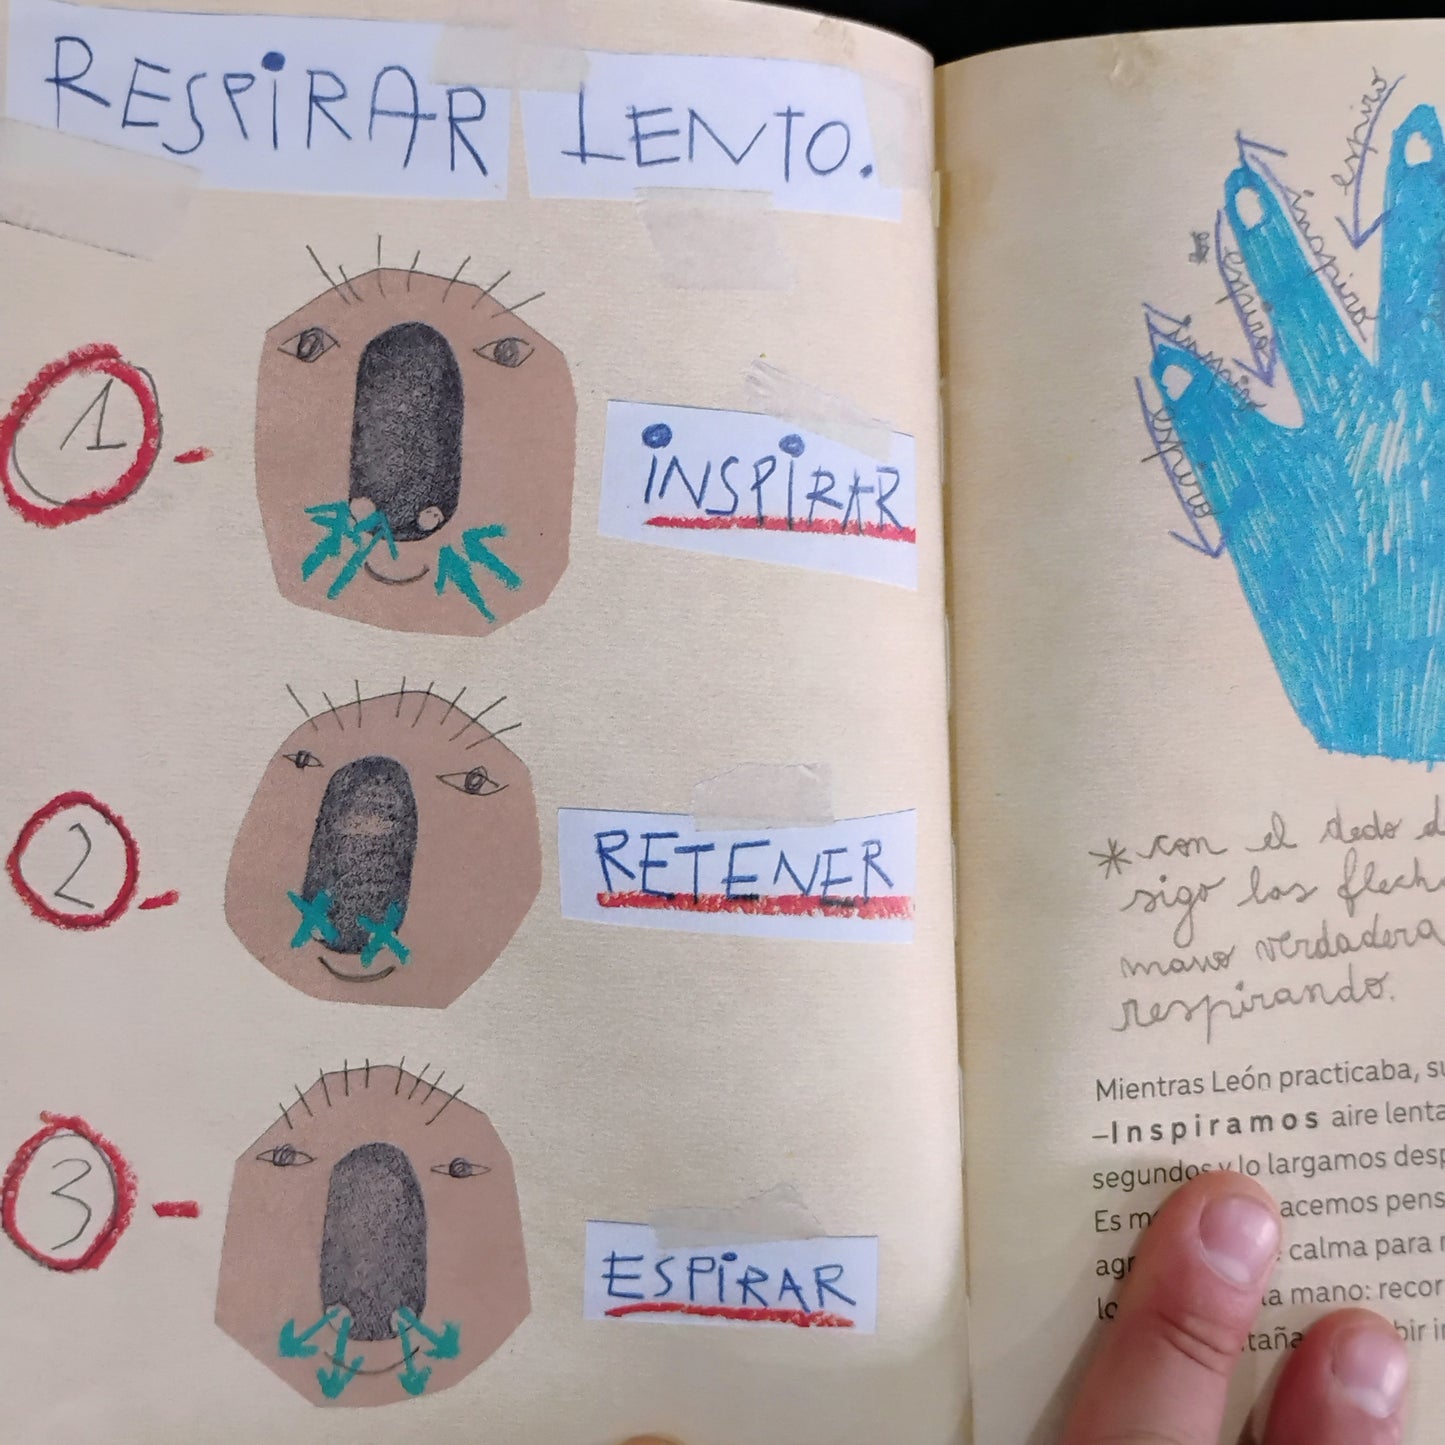 RESPIRAR LENTO.
1- INSPIRAR
2- RETENER
3- ESPIRAR
espiro
inspiro
espiro
inspiro
espiro
* con el dedo
sigo las
mano verdadera
respirando.
Mientras León practicaba,
–Inspiramos aire
segundos y lo largamos
Es
calma para
la mano: